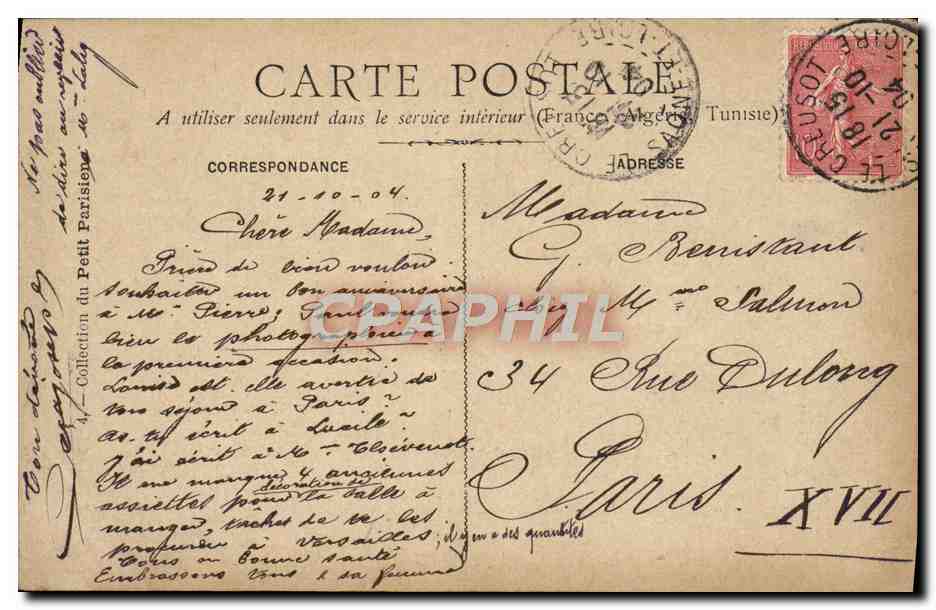 CARTE POSTALE
A utiliser seulement dans le service intérieur (France, Algérie, Tunisie)
CORRESPONDANCE
ADRESSE
21-10-04.
Chère Madame,
Prière de bien vouloir
souhaiter un bon anniversaire
à Mr Pierre; Paul voudra
bien le photographier à
la première occasion.
Louise est-elle avertie de
ton séjour à Paris?
As-tu écrit à Lucile?
J'ai écrit à Mme Thévenot.
Il me manque 4 anciennes
assiettes pour la décoration de salle à
manger, tâchez de te les
procurer à Versailles; il y en a des quantités
Tous en bonne santé
Embrassons tous
Madame
G. Bennistant
chez Mme Salmon
34 Rue Dulong
Paris.
XVII
Ne pas oublier
de dire
Ton dévoué
4. — Collection du Petit Parisien
LE CREUSOT
18 15
21 -10
04
SAONE-ET-LOIRE
LE CREUSOT
CPAPHIL